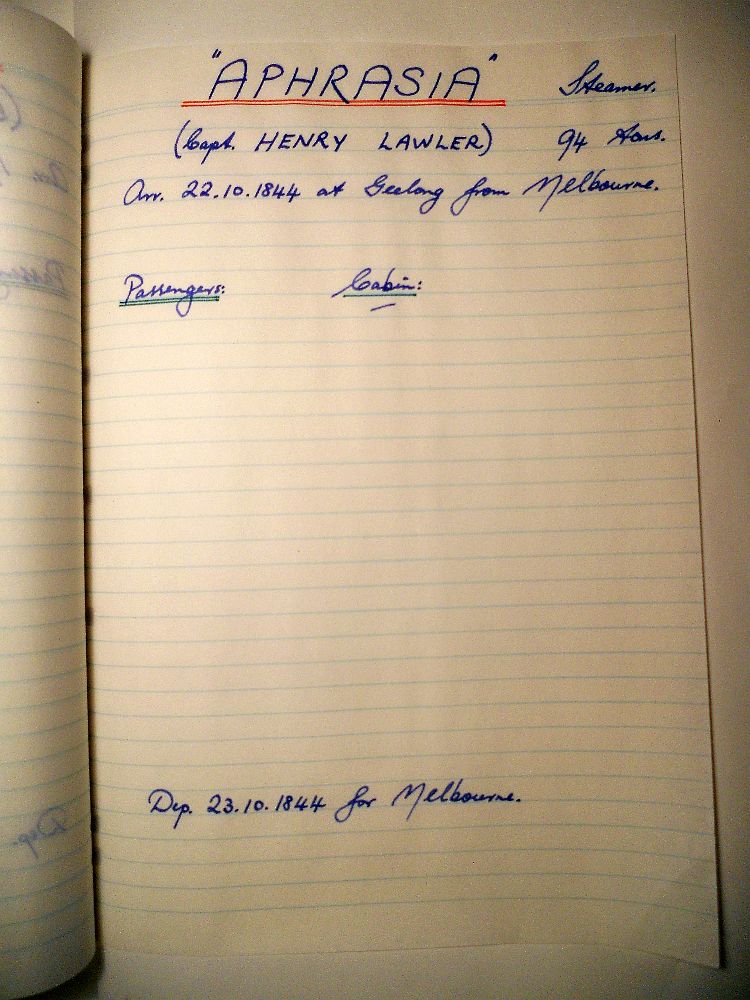 "APHRASIA" Steamer.
(Capt. HENRY LAWLER) 94 tons.
Arr. 22.10.1844 at Geelong from Melbourne.
Passengers: Cabin:
Dep. 23.10.1844 for Melbourne.